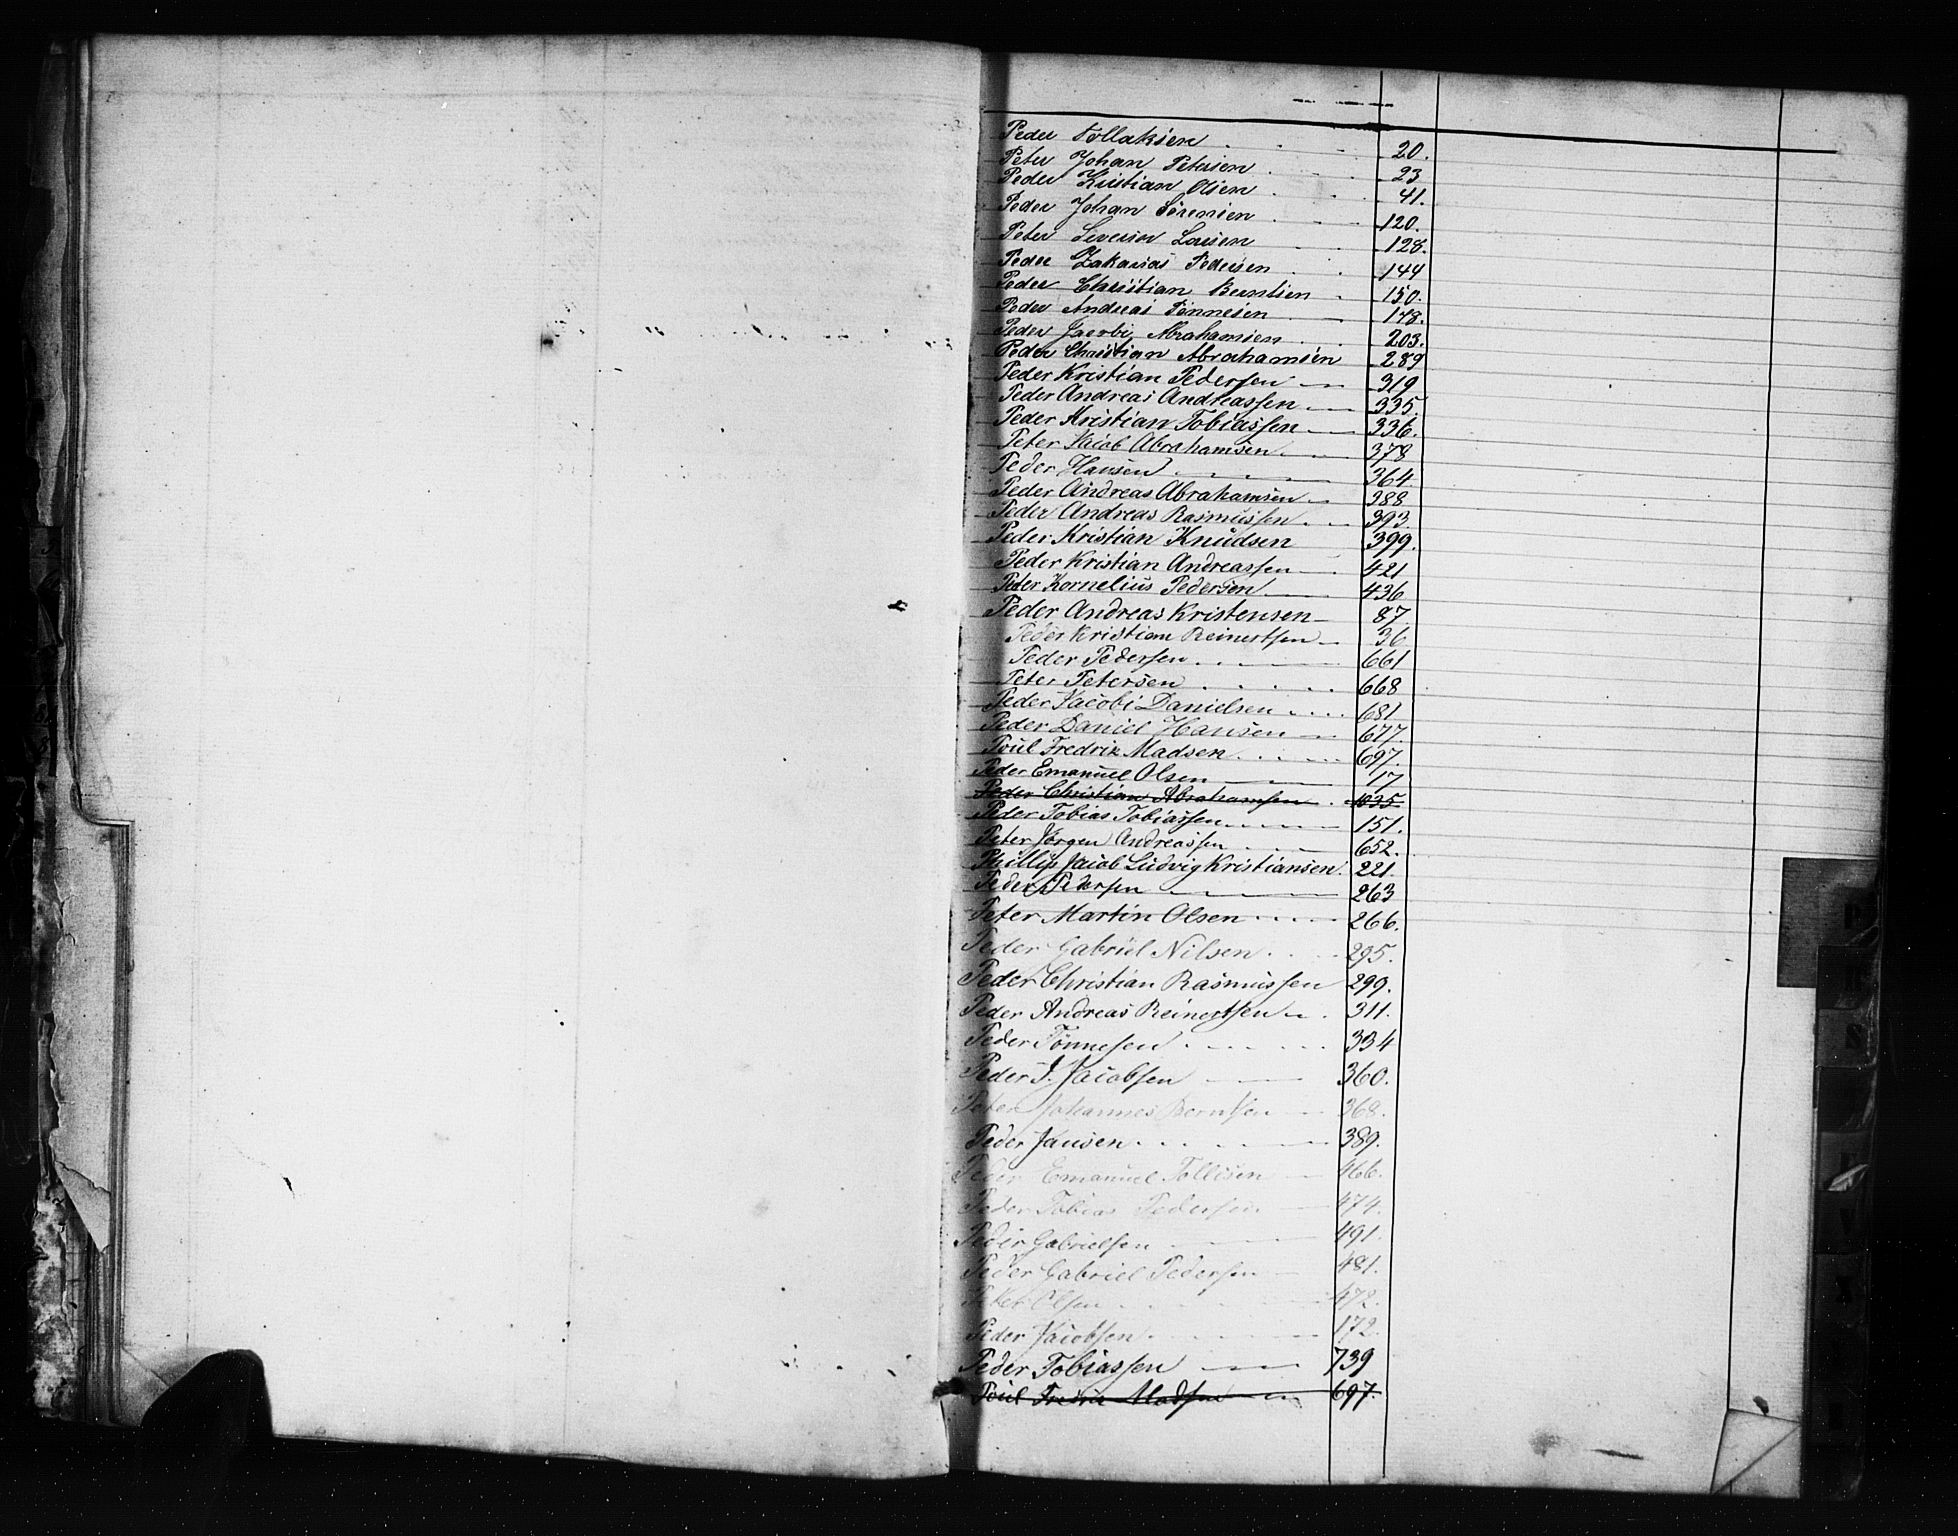 Peder Tollaksen 20.
Peter Johan Petersen 23
Peder Kristian Olsen 41.
Peder Johan Sørensen 120.
Peter Severin Larsen 128.
Peder Zakarias Pedersen 144
Peder Christian Berntsen 150.
Peder Andreas Tönnesen 148.
Peder Jacobi Abrahamsen 203.
Peder Christian Abrahamsen 289
Peder Kristian Pederssen 319
Peder Andreas Andreassen 335.
Peder Kristian Tobiassen 336.
Peter Jacob Abrahamsen 378
Peder Hansen 364
Peder Andreas Abrahamsen 388
Peder Andreas Rasmussen 393.
Peder Kristian Knudsen 399.
Peder Kristian Andreassen 421
Peter Kornelius Pedersen 436
Peder Andreas Kristensen 87.
Peder Kristian Reinertsen 36
Peder Pedersen 661
Peter Petersen 668
Peder Jacobi Danielsen 681
Peder Daniel Hansen 677.
Poul Fredrik Madsen 697.
Peder Emanuel Olsen 17
Peder Christian Abrahamsen 1035
Peder Tobias Tobiassen 151.
Peter Jörgen Andreassen 652.
Phillip Jacob Ludvig Kristiansen. 221.
Peder Pedersen 263
Peter Martin Olsen 266.
Peder Gabriel Nilsen 295.
Peder Christian Rasmussen 299.
Peder Andreas Reinertsen 311.
Peder Tönnesen 334
Peder J. Jacobsen 360.
Peter Johannes Berntsen 368.
Peder Jansen 389.
Peder Emanuel Tollisen 466.
Peder Tobias Pedersen 474.
Peder Gabrielsen 491.
Peder Gabriel Pedersen 481.
Peter Olsen 472.
Peder Jacobsen 172.
Peder Tobiassen 739
Poul Fredrik Madsen 697.